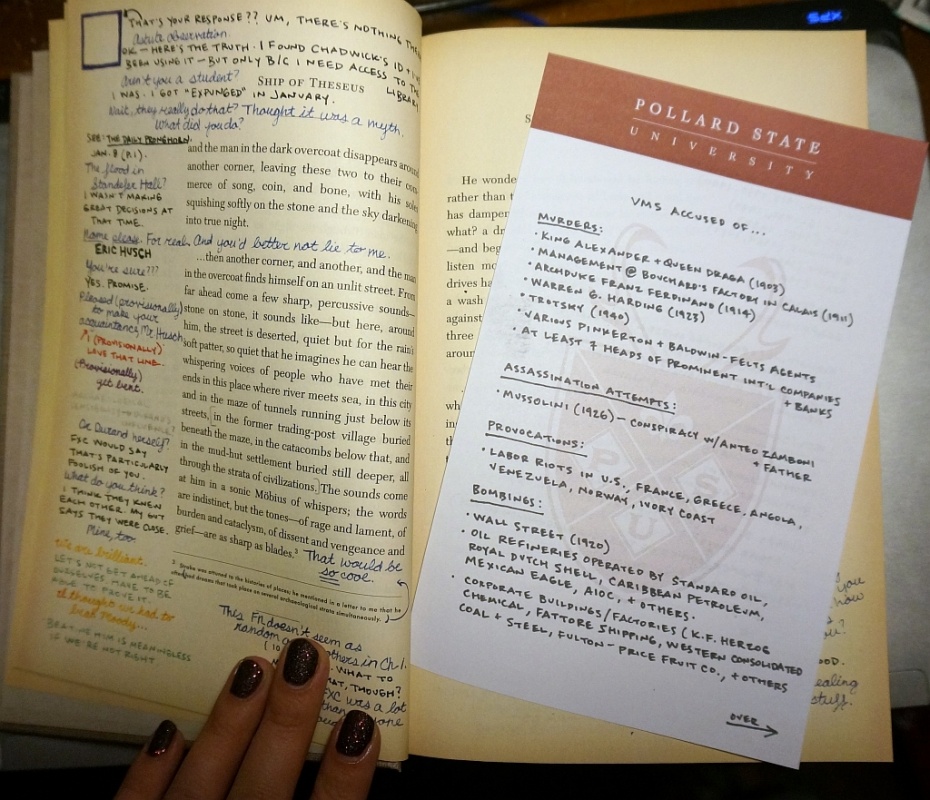 THAT'S YOUR RESPONSE?? UM, THERE'S NOTHING
astute observation.
OK – HERE'S THE TRUTH. I FOUND CHADWICK'S ID +
BEEN USING IT – BUT ONLY B/C I NEED ACCESS TO THE
LIBRARY.
aren't you a student?
SHIP OF THESEUS
I WAS. I GOT "EXPUNGED" IN JANUARY.
Wait, they really do that? Thought it was a myth.
What did you do?
SEE: THE DAILY PRONGHORN.
JAN. 8 (P.1).
The flood in
Standefer Hall?
I WASN'T MAKING
GREAT DECISIONS AT
THAT TIME.
and the man in the dark overcoat disappears around
another corner, leaving these two to their
merce of song, coin, and bone, with his
squishing softly on the stone and the sky darkening
into true night.
Name please. For real. And you'd better not lie to me.
ERIC HUSCH
You're sure???
YES. PROMISE.
Pleased (provisionally)
to make your
acquaintance, Mr. Husch
I (PROVISIONALLY)
LOVE THAT LINE.
(Provisionally)
get bent.
...then another corner, and another, and the man
in the overcoat finds himself on an unlit street. From
far ahead come a few sharp, percussive sounds—
stone on stone, it sounds like—but here, around
him, the street is deserted, quiet but for the rain's
soft patter, so quiet that he imagines he can hear the
whispering voices of people who have met their
ends in this place where river meets sea, in this city
and in the maze of tunnels running just below its
streets, in the former trading-post village buried
beneath the maze, in the catacombs below that, and
in the mud-hut settlement buried still deeper, all
through the strata of civilizations. The sounds come
at him in a sonic Möbius of whispers; the words
are indistinct, but the tones—of rage and lament, of
burden and cataclysm, of dissent and vengeance and
grief—are as sharp as blades.³
That would be
so cool.
Or Durand herself?
FXC WOULD SAY
THAT'S PARTICULARLY
FOOLISH OF YOU.
What do you think?
I THINK THEY KNEW
EACH OTHER. MY GUT
SAYS THEY WERE CLOSE.
Mine, too.
We are brilliant.
LET'S NOT GET AHEAD OF
OURSELVES. HAVE TO BE
ABLE TO PROVE IT.
I thought we had to
beat Moody...
BEATING HIM IS MEANINGLESS
IF WE'RE NOT RIGHT
3 Straka was attuned to the histories of places; he mentioned in a letter to me that he
dreams that took place on several archaeological strata simultaneously.
This FN doesn't seem as
random
others in Ch. 1.
WHAT TO
THAT, THOUGH?
FXC was a lot
He
rather
has
what? a
—and
listen
drives
a wash
against
three
POLLARD STATE
UNIVERSITY
VMS ACCUSED OF...
MURDERS:
• KING ALEXANDER + QUEEN DRAGA (1903)
• MANAGEMENT @ BOUCHARD'S FACTORY IN CALAIS (1911)
• ARCHDUKE FRANZ FERDINAND (1914)
• WARREN G. HARDING (1923)
• TROTSKY (1940)
• VARIOUS PINKERTON + BALDWIN-FELTS AGENTS
• AT LEAST 7 HEADS OF PROMINENT INT'L COMPANIES
+ BANKS
ASSASSINATION ATTEMPTS:
• MUSSOLINI (1926) – CONSPIRACY W/ ANTEO ZAMBONI
+ FATHER
PROVOCATIONS:
• LABOR RIOTS IN U.S., FRANCE, GREECE, ANGOLA,
VENEZUELA, NORWAY, IVORY COAST
BOMBINGS:
• WALL STREET (1920)
• OIL REFINERIES OPERATED BY STANDARD OIL,
ROYAL DUTCH SHELL, CARIBBEAN PETROLEUM,
MEXICAN EAGLE, AIOC, + OTHERS.
• CORPORATE BUILDINGS/FACTORIES (K.F. HERZOG
CHEMICAL, FATTORE SHIPPING, WESTERN CONSOLIDATED
COAL + STEEL, FULTON-PRICE FRUIT CO., + OTHERS
OVER
you
stuff.